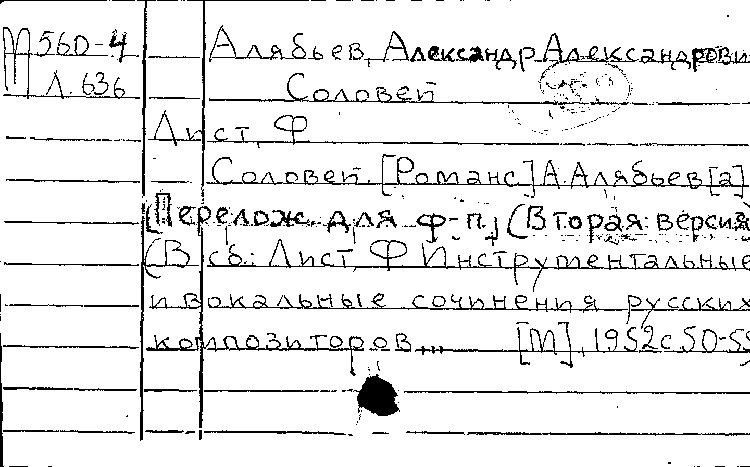 М 560-4 Алябьев, Александр Александрови
Л. 636 Соловей
Лист, Ф
Соловей. [Романс] А. Алябьев[а]
[Перелож. для ф-п.] (Вторая версия)
(В сб.: Лист, Ф Инструментальные
и вокальные сочинения русских
композиторов... [М], 1952 с. 50-55